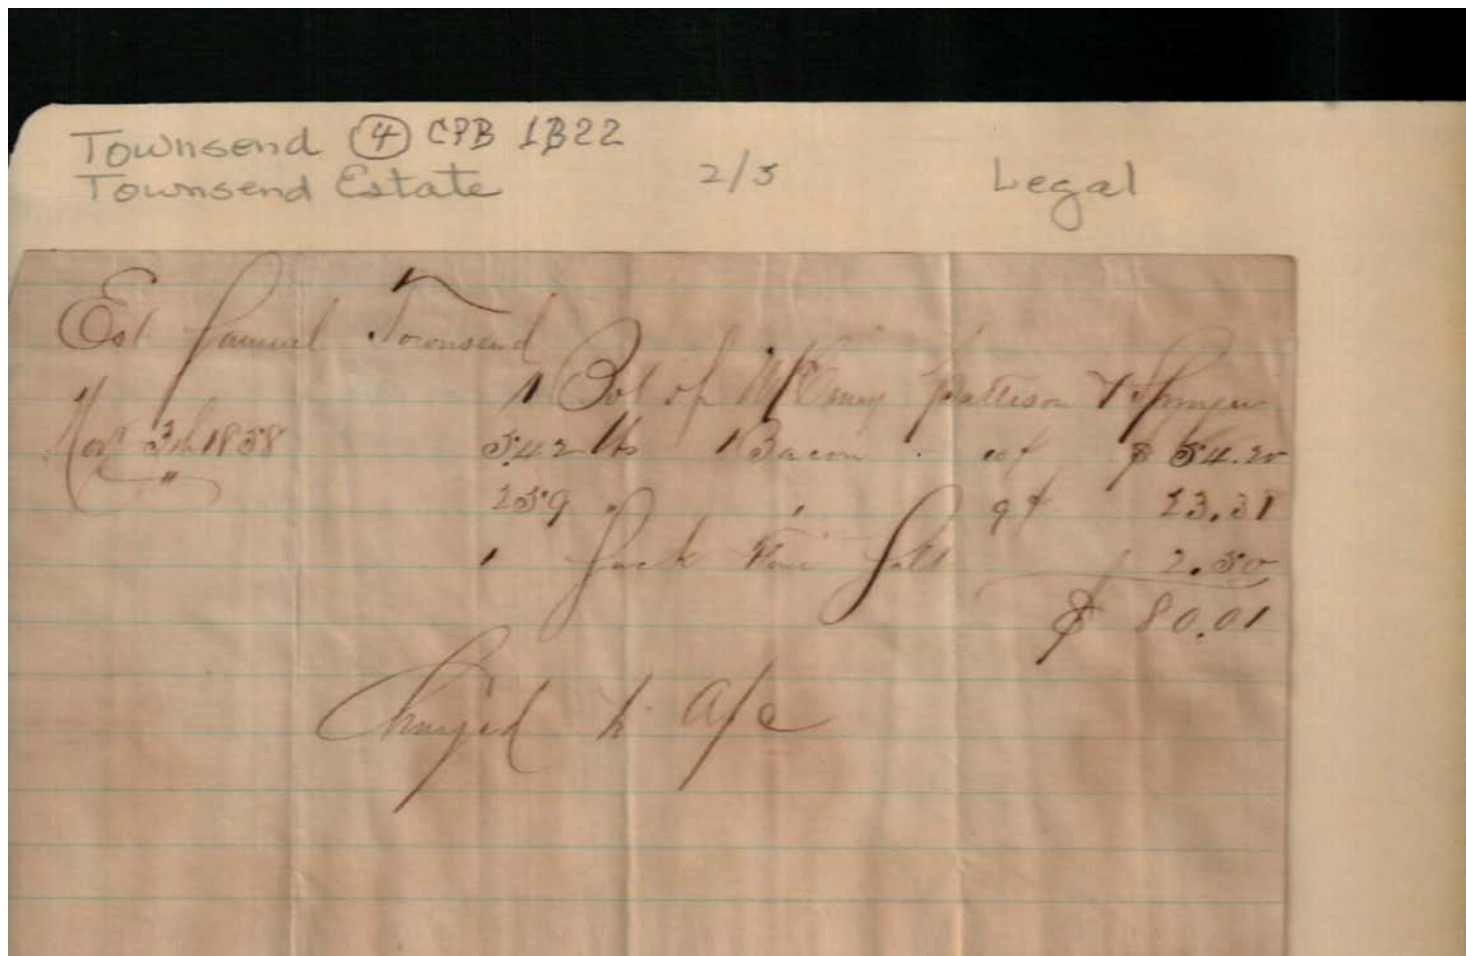 Townsend ④ CPB 1B22
Townsend Estate 2/3 Legal
Est Samuel Townsend
Bot of Pattison &
Nov 3d 1858 542 lbs Bacon 10¢ $ 54.20
259 " " 9¢ 23.31
1 Sack Fine Salt 2.50
$ 80.01
Charged to a/c